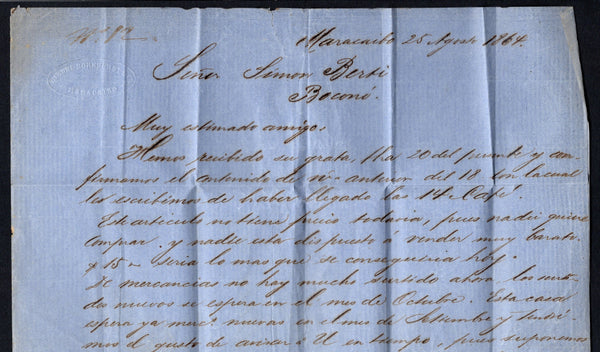 Nº 82
Maracaibo 25 Agosto 1864.
Señor Simon Berti
Boconó.
Muy estimado amigo.
Hemos recibido su grata, fha 20 del presente y con-
firmamos el contenido de ntra anterior del 18 con la cual
les escribimos de haber llegado las 14 Café.
Este articulo no tiene precio todavia, pues nadie quiere
comprar y nadie esta dispuesto á vender muy barato.
$ 15 seria lo mas que se conseguiria hoy.
De mercancias no hay mucho surtido ahora los surti-
dos nuevos se espera en el mes de Octubre. Esta casa
espera ya merc.s nuevas en el mes de Setiembre y tendré-
mos el gusto de avisar á U en tiempo, pues suponemos